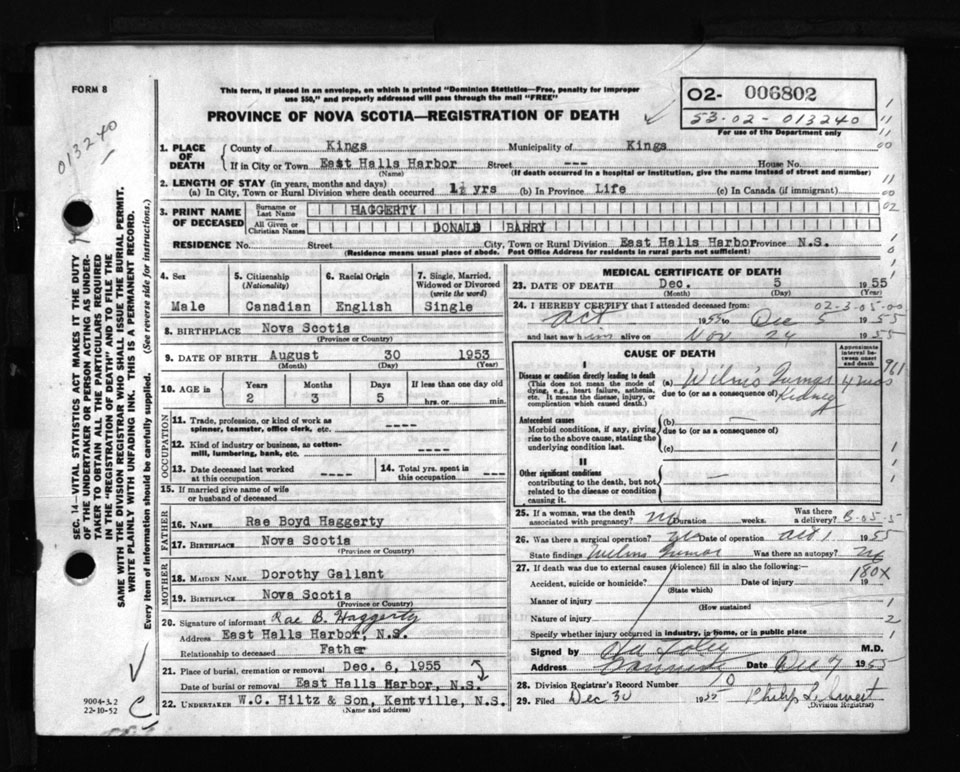 FORM 8
This form, if placed in an envelope, on which is printed "Dominion Statistics—Free, penalty for improper
use $50," and properly addressed will pass through the mail "FREE"
PROVINCE OF NOVA SCOTIA—REGISTRATION OF DEATH
O2- 006802
53-02-013240
For use of the Department only
013240
1. PLACE OF DEATH
County of Kings Municipality of Kings
If in City or Town East Halls Harbor Street --- House No.
(Name) (If death occurred in a hospital or institution, give the name instead of street and number)
2. LENGTH OF STAY (in years, months and days)
(a) In City, Town or Rural Division where death occurred 1½ yrs (b) In Province Life (c) In Canada (if immigrant)
3. PRINT NAME OF DECEASED
Surname or Last Name HAGGERTY
All Given or Christian Names DONALD BARRY
RESIDENCE No. Street City, Town or Rural Division East Halls Harbor Province N.S.
(Residence means usual place of abode. Post Office Address for residents in rural parts not sufficient)
4. Sex
Male
5. Citizenship (Nationality)
Canadian
6. Racial Origin
English
7. Single, Married, Widowed or Divorced (write the word)
Single
8. BIRTHPLACE Nova Scotia
(Province or Country)
9. DATE OF BIRTH August 30 1953
(Month) (Day) (Year)
10. AGE in Years Months Days If less than one day old
2 3 5 hrs. or min.
OCCUPATION
11. Trade, profession, or kind of work as spinner, teamster, office clerk, etc. ----
12. Kind of industry or business, as cotton-mill, lumbering, bank, etc. ----
13. Date deceased last worked at this occupation ----
14. Total yrs. spent in this occupation ---
15. If married give name of wife or husband of deceased
FATHER
16. NAME Rae Boyd Haggerty
17. BIRTHPLACE Nova Scotia
(Province or Country)
MOTHER
18. MAIDEN NAME Dorothy Gallant
19. BIRTHPLACE Nova Scotia
(Province or Country)
20. Signature of informant Rae B. Haggerty
Address East Halls Harbor, N.S.
Relationship to deceased Father
21. Place of burial, cremation or removal Dec. 6, 1955
Date of burial or removal East Halls Harbor, N.S.
22. UNDERTAKER W.C. Hiltz & Son, Kentville, N.S.
(Name and address)
MEDICAL CERTIFICATE OF DEATH
23. DATE OF DEATH Dec. 5 1955
(Month) (Day) (Year)
24. I HEREBY CERTIFY that I attended deceased from:
02-3-05-00
Oct 1955 to Dec 5 1955
and last saw him alive on Nov 24 1955
CAUSE OF DEATH
Approximate interval between onset and death
I
Disease or condition directly leading to death
(This does not mean the mode of dying, e.g., heart failure, asthenia, etc. It means the disease, injury, or complication which caused death.)
(a) Wilm's Tumor 4 mos
due to (or as a consequence of) Kidney
961
Antecedent causes
Morbid conditions, if any, giving rise to the above cause, stating the underlying condition last.
(b)
due to (or as a consequence of)
(c)
II
Other significant conditions
contributing to the death, but not related to the disease or condition causing it.
25. If a woman, was the death associated with pregnancy? no Duration weeks. Was there a delivery?
B-05-5
26. Was there a surgical operation? yes Date of operation Oct 1 1955
State findings Wilms Tumor Was there an autopsy? no
27. If death was due to external causes (violence) fill in also the following:
180X
Accident, suicide or homicide? Date of injury 19
(State which)
Manner of injury
(How sustained)
Nature of injury
Specify whether injury occurred in industry, in home, or in public place
Signed by M.D.
Address Date Dec 7 1955
28. Division Registrar's Record Number 10
29. Filed Dec 30 1955
(Division Registrar)
SEC. 14—VITAL STATISTICS ACT MAKES IT THE DUTY
OF THE UNDERTAKER OR PERSON ACTING AS UNDER-
TAKER TO OBTAIN ALL THE PARTICULARS REQUIRED
IN THE "REGISTRATION OF DEATH" AND TO FILE THE
SAME WITH THE DIVISION REGISTRAR WHO SHALL ISSUE THE BURIAL PERMIT.
WRITE PLAINLY WITH UNFADING INK. THIS IS A PERMANENT RECORD.
Every item of information should be carefully supplied. (See reverse side for instructions.)
9004-3.2
22-10-52
C